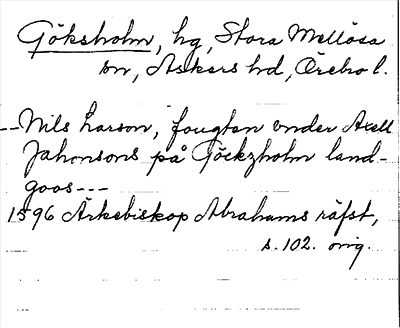 Göksholm, hg, Stora Mellösa
sn, Askers hd, Örebro l.
--Nils Larson, fougten vnder Axell
Jahonsons på Göckzholm land-
goos---
1596 Ärkebiskop Abrahams räfst,
s. 102. orig.